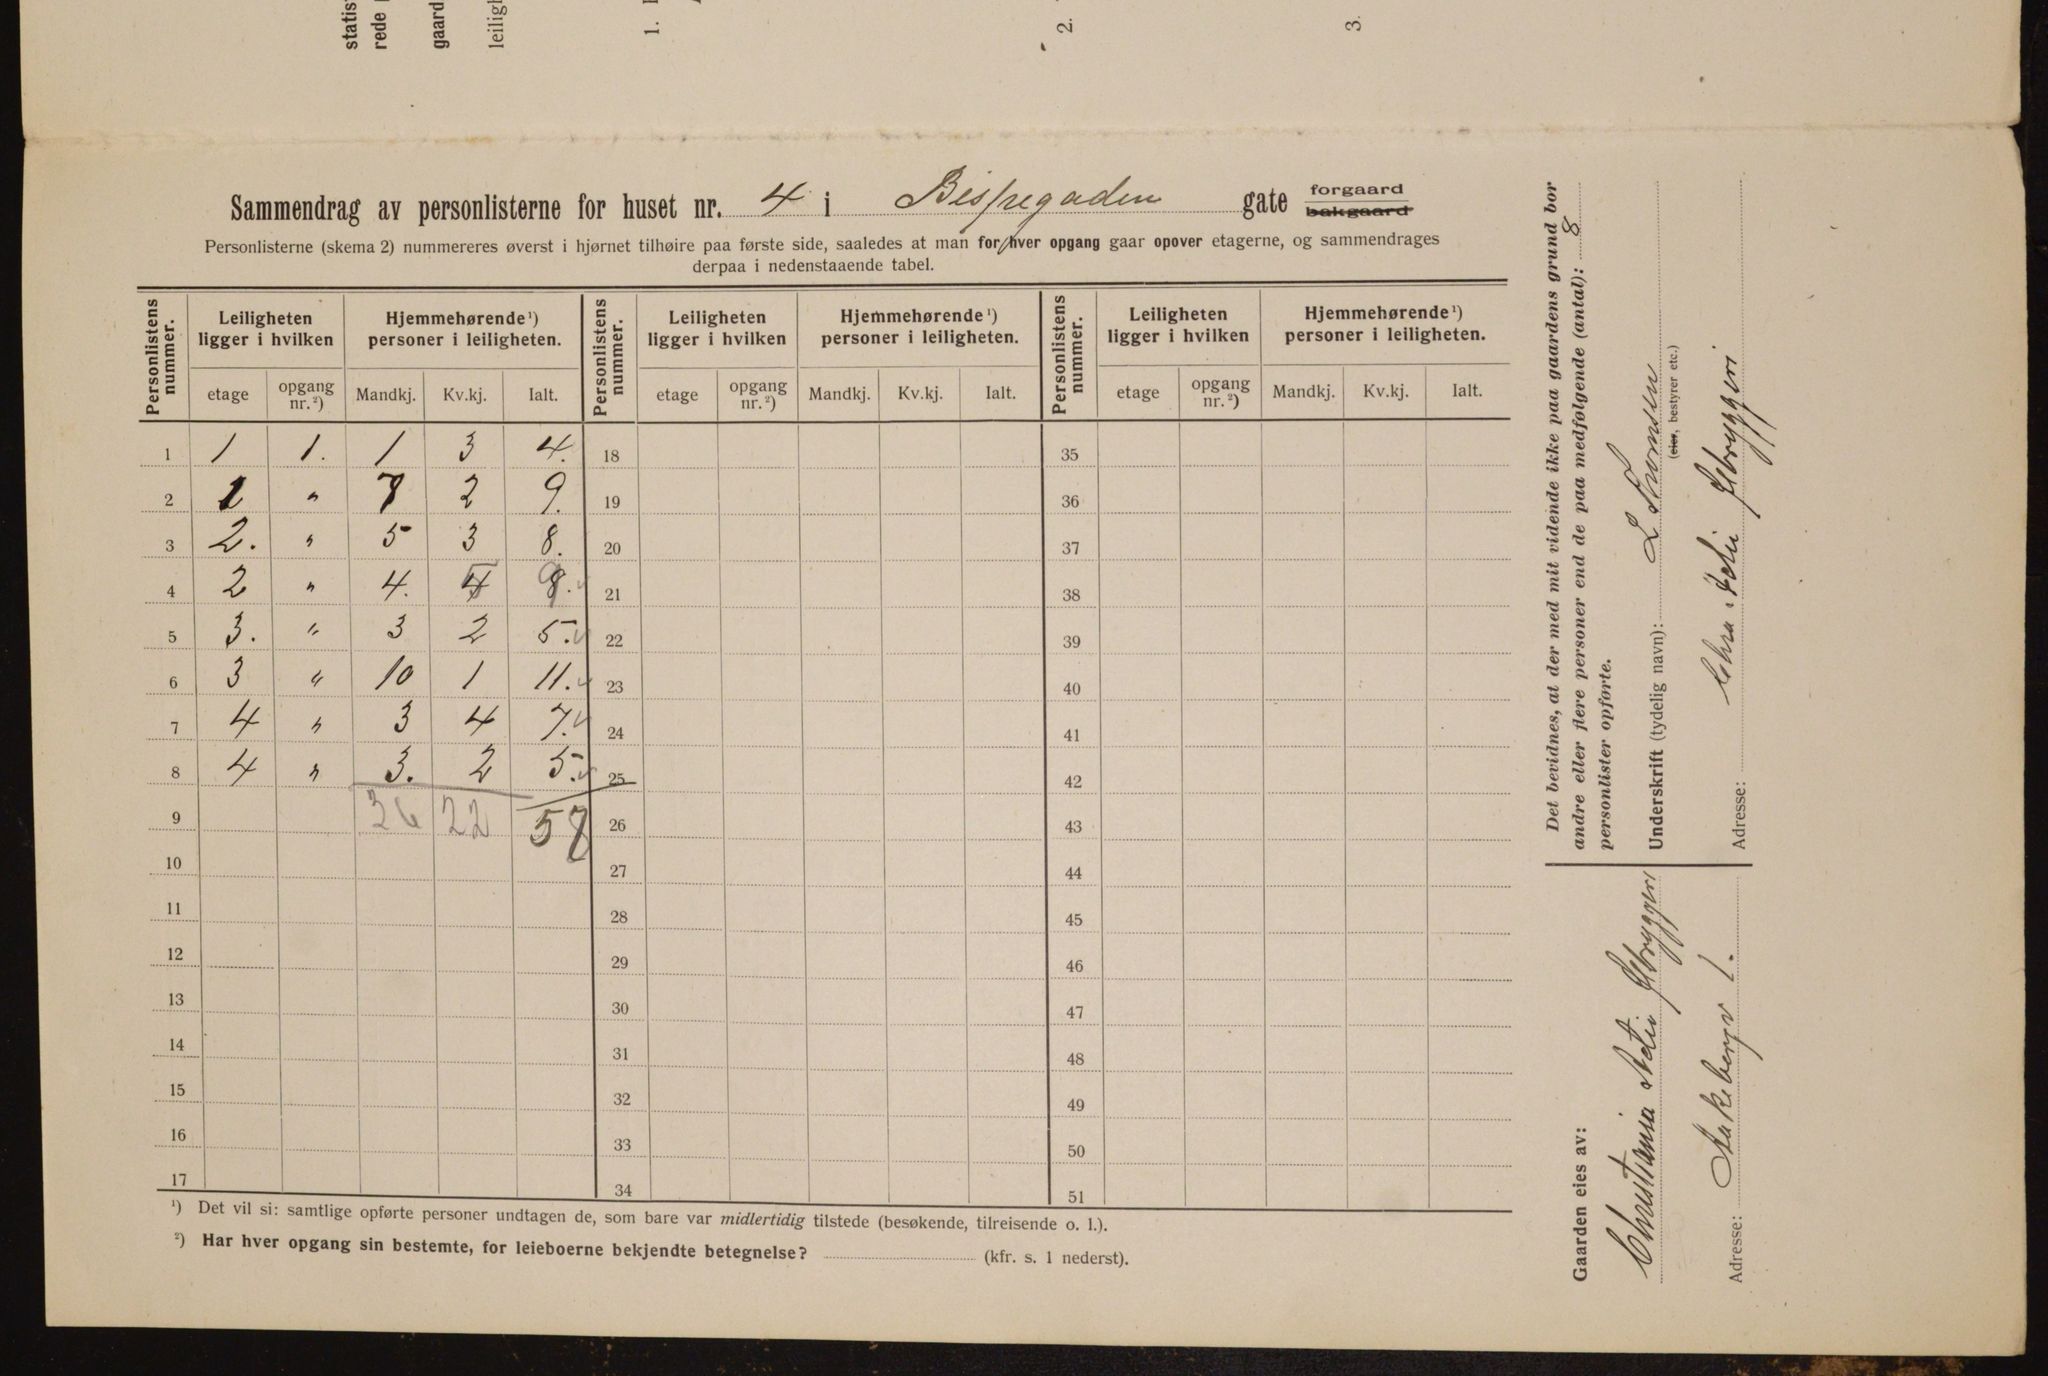 statis
rede
gaard
leiligh
1.
2.
3.
Sammendrag av personlisterne for huset nr. 4 i Bispegaden gate forgaard
bakgaard
Personlisterne (skema 2) nummereres øverst i hjørnet tilhøire paa første side, saaledes at man for hver opgang gaar opover etagerne, og sammendrages
derpaa i nedenstaaende tabel.
Personlistens nummer. Leiligheten ligger i hvilken Hjemmehørende ¹) personer i leiligheten. Personlistens nummer. Leiligheten ligger i hvilken Hjemmehørende ¹) personer i leiligheten. Personlistens nummer. Leiligheten ligger i hvilken Hjemmehørende ¹) personer i leiligheten.
etage opgang nr. ²) Mandkj. Kv.kj. Ialt. etage opgang nr. ²) Mandkj. Kv.kj. Ialt. etage opgang nr. ²) Mandkj. Kv.kj. Ialt.
1 1 1. 1 3 4. 18 35
2 1 " 7 2 9. 19 36
3 2. " 5 3 8. 20 37
4 2 " 4. 4 5 8. 9 21 38
5 3. " 3 2 5. 22 39
6 3 " 10 1 11. 23 40
7 4 " 3 4 7. 24 41
8 4 " 3. 2 5. 25 42
9 36 22 58 26 43
10 27 44
11 28 45
12 29 46
13 30 47
14 31 48
15 32 49
16 33 50
17 34 51
¹) Det vil si: samtlige opførte personer undtagen de, som bare var midlertidig tilstede (besøkende, tilreisende o. l.).
²) Har hver opgang sin bestemte, for leieboerne bekjendte betegnelse? (kfr. s. 1 nederst).
Det bevidnes, at der med mit vidende ikke paa gaardens grund bor
andre eller flere personer end de paa medfølgende (antal): 8
personlister opførte.
Underskrift (tydelig navn): L Thomsen
(eier, bestyrer etc.)
Adresse: Chra. Actie Ølbryggeri
Gaarden eies av:
Christiania Actie Ølbryggeri
Adresse: Aakebergv 1.